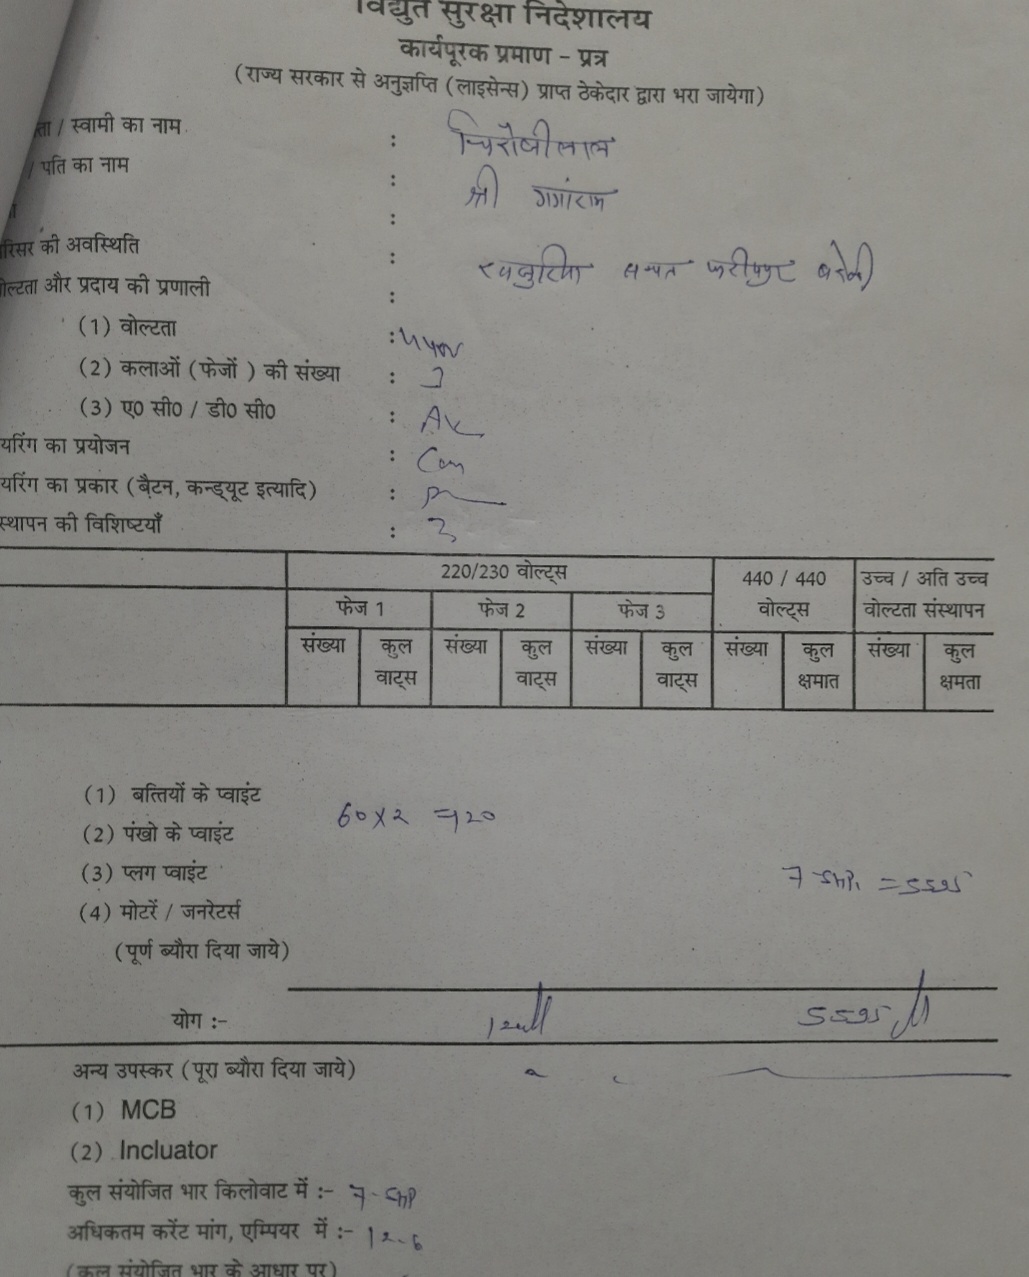 विद्युत सुरक्षा निदेशालय
कार्यपूरक प्रमाण - प्रत्र
(राज्य सरकार से अनुज्ञप्ति (लाइसेन्स) प्राप्त ठेकेदार द्वारा भरा जायेगा)
ता / स्वामी का नाम : चिरौंजीलाल
/ पति का नाम : श्री गगांराम
:
रिसर की अवस्थिति : फरीदपुर बरेली
ोल्टता और प्रदाय की प्रणाली :
(1) वोल्टता :
(2) कलाओं (फेजों ) की संख्या : 3
(3) ए0 सी0 / डी0 सी0 : AC
यरिंग का प्रयोजन :
यरिंग का प्रकार (बैटन, कन्ड्यूट इत्यादि) :
स्थापन की विशिष्टयाँ : 3
220/230 वोल्ट्स 440 / 440 वोल्ट्स उच्च / अति उच्च वोल्टता संस्थापन
फेज 1 फेज 2 फेज 3
संख्या कुल वाट्स संख्या कुल वाट्स संख्या कुल वाट्स संख्या कुल क्षमात संख्या कुल क्षमता
(1) बत्तियों के प्वाइंट
60x2 =120
(2) पंखो के प्वाइंट
(3) प्लग प्वाइंट
7-5HP. =5595
(4) मोटरें / जनरेटर्स
(पूर्ण ब्यौरा दिया जाये)
योग :- 120 5595
अन्य उपस्कर (पूरा ब्यौरा दिया जाये)
(1) MCB
(2) Incluator
कुल संयोजित भार किलोवाट में :- 7-5HP
अधिकतम करेंट मांग, एम्पियर में :- 12-6
(कुल संयोजित भार के आधार पर)